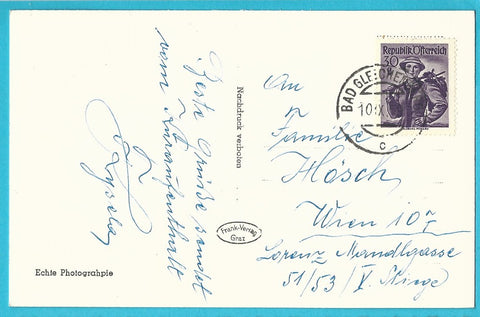 Beste Grüße sendet
vom Kuraufenthalt
Nachdruck verboten
Echte Photograhpie
Frank-Verlag
Graz
Republik Österreich
30
BAD GLEICHEN
10.X
c
An
Familie
Hösch
Wien 107
Lorenz Mandlgasse
51/53/V. Stiege